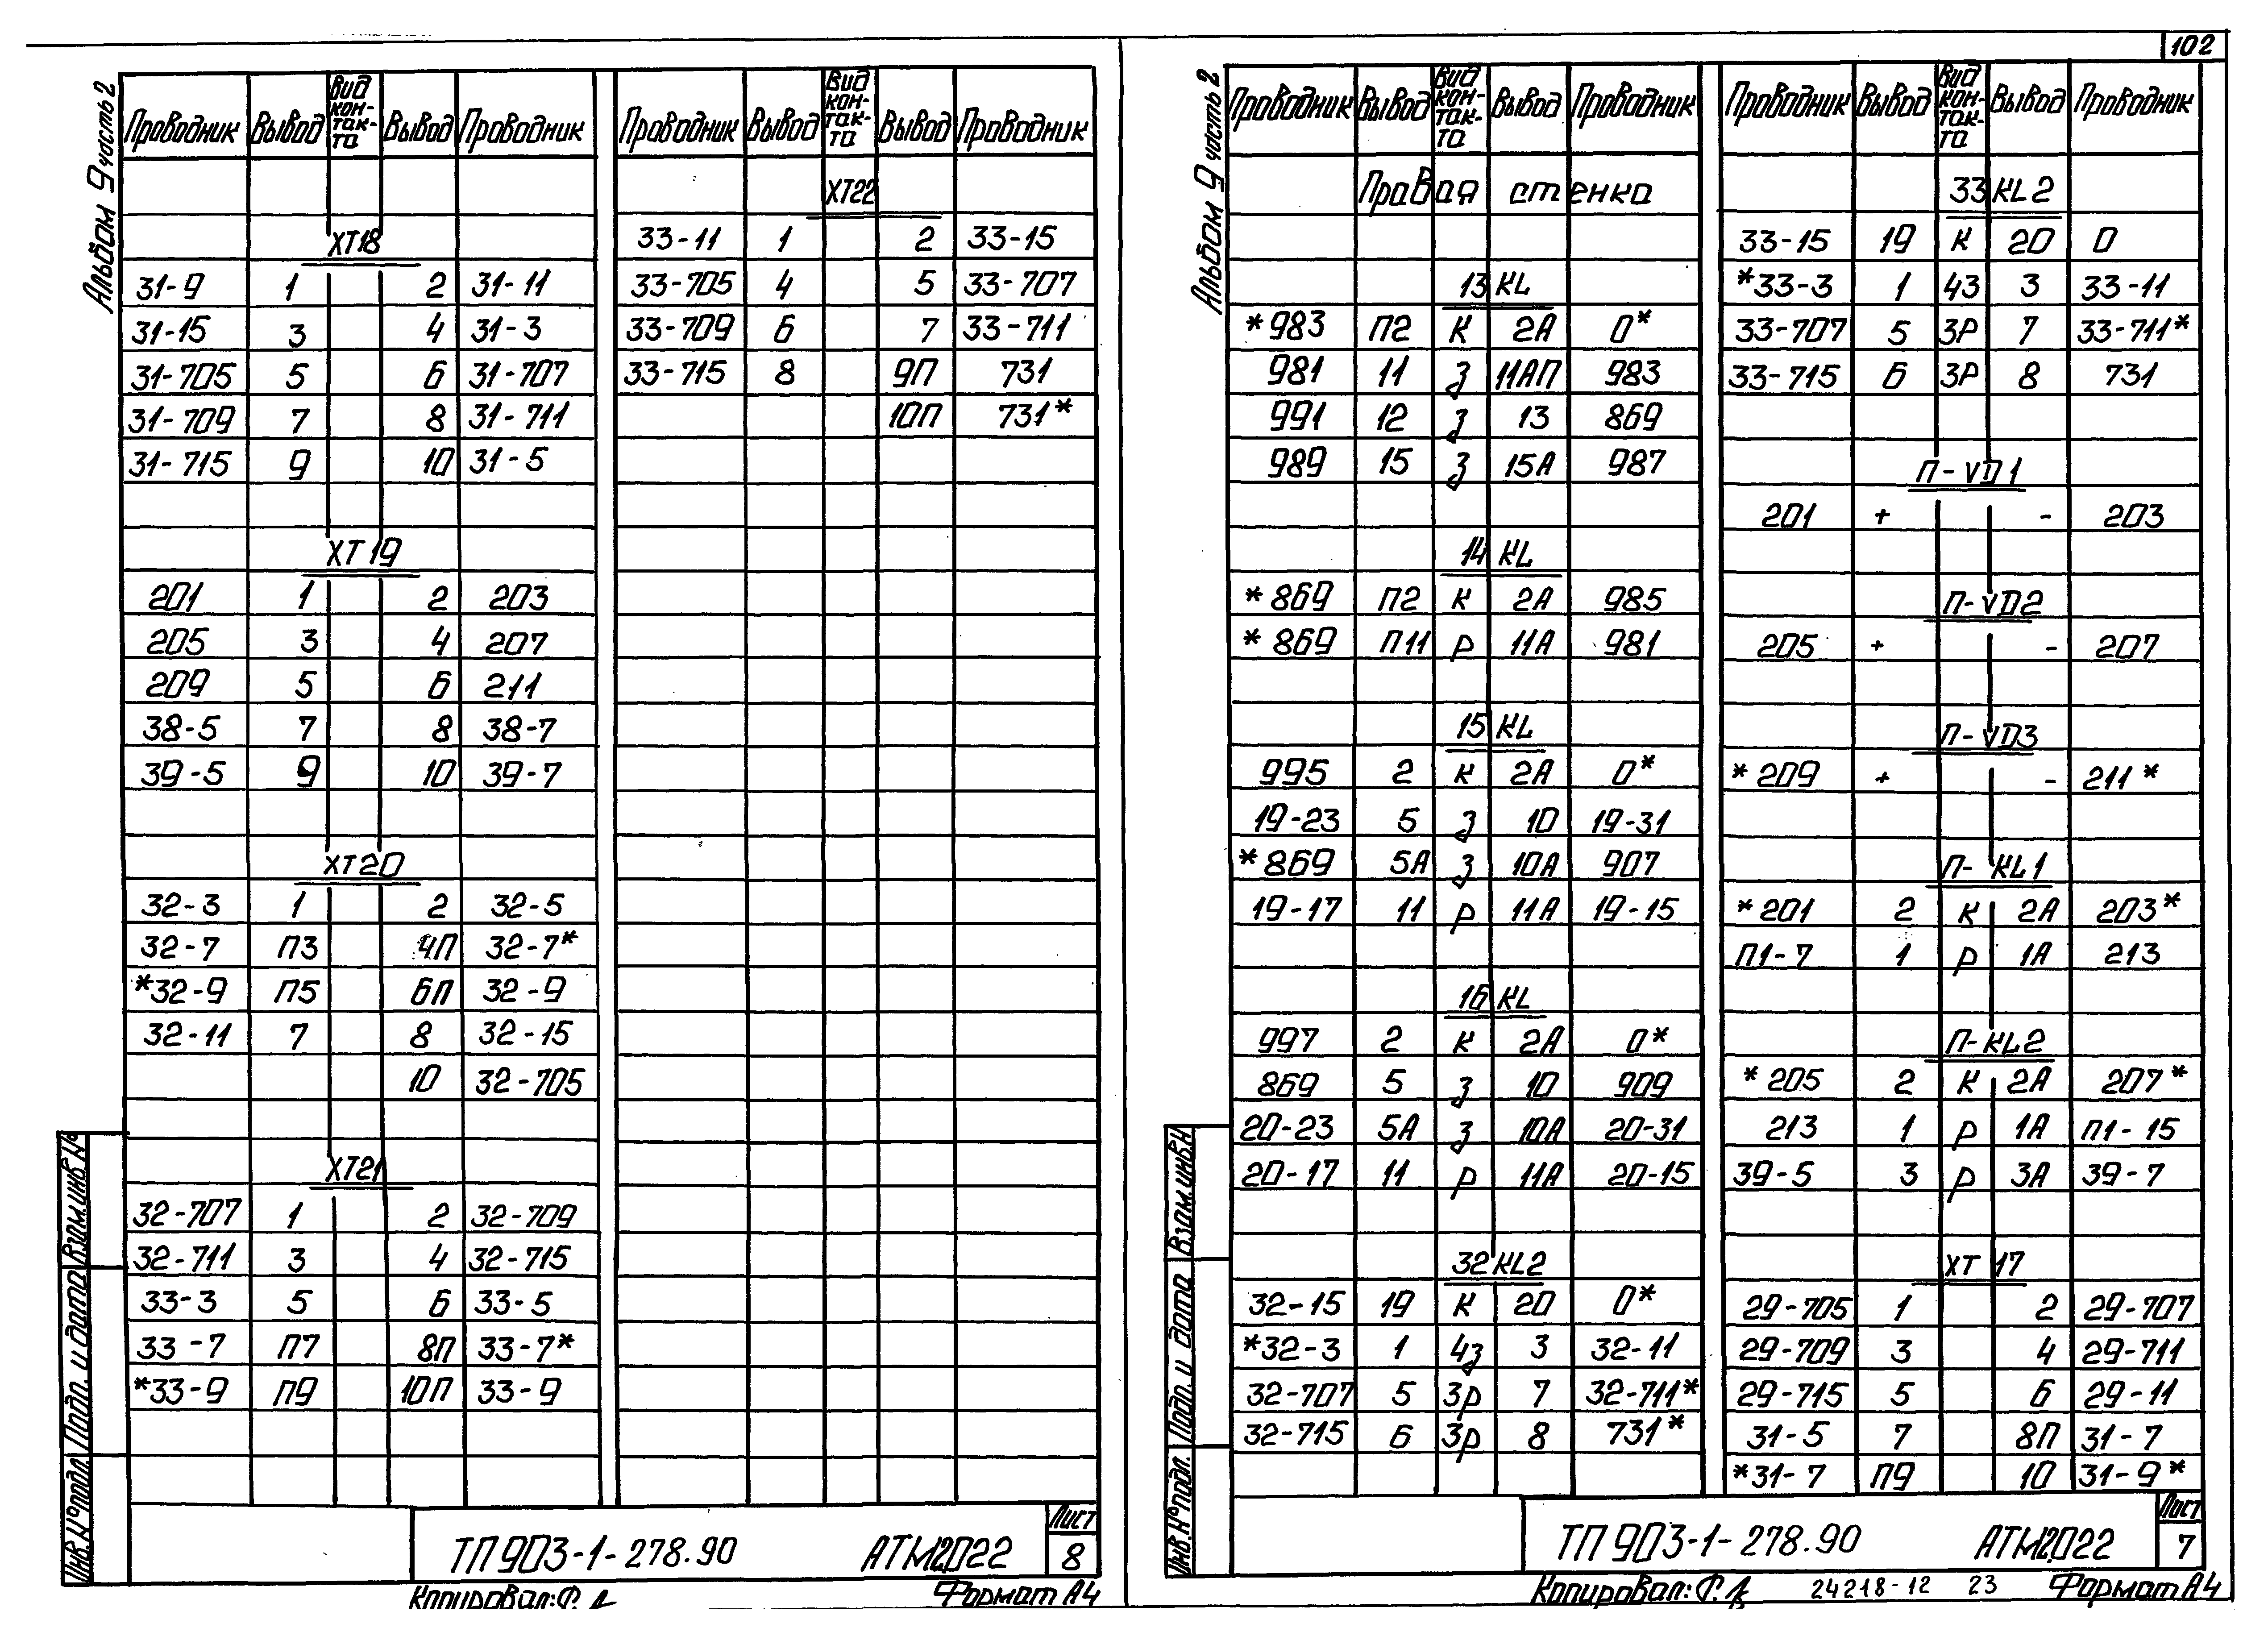 102
Альбом 9 часть 2
Проводник Вывод Вид контакта Вывод Проводник
ХТ18
31-9 1 2 31-11
31-15 3 4 31-3
31-705 5 6 31-707
31-709 7 8 31-711
31-715 9 10 31-5
ХТ19
201 1 2 203
205 3 4 207
209 5 6 211
38-5 7 8 38-7
39-5 9 10 39-7
ХТ20
32-3 1 2 32-5
32-7 П3 4П 32-7*
*32-9 П5 6П 32-9
32-11 7 8 32-15
10 32-705
ХТ21
32-707 1 2 32-709
32-711 3 4 32-715
33-3 5 6 33-5
33-7 П7 8П 33-7*
*33-9 П9 10П 33-9
Проводник Вывод Вид контакта Вывод Проводник
ХТ22
33-11 1 2 33-15
33-705 4 5 33-707
33-709 6 7 33-711
33-715 8 9П 731
10П 731*
Взам.инв.№
Подп. и дата
Инв.№подл.
ТП 903-1-278.90 АТМ2.022
Лист
8
Копировал:
Формат А4
Альбом 9 часть 2
Проводник Вывод Вид контакта Вывод Проводник
Правая стенка
13KL
*983 П2 К 2А 0*
981 11 З 11АП 983
991 12 З 13 869
989 15 З 15А 987
14KL
*869 П2 К 2А 985
*869 П11 Р 11А 981
15KL
995 2 К 2А 0*
19-23 5 З 10 19-31
*869 5А З 10А 907
19-17 11 Р 11А 19-15
16KL
997 2 К 2А 0*
869 5 З 10 909
20-23 5А З 10А 20-31
20-17 11 Р 11А 20-15
32KL2
32-15 19 К 20 0*
*32-3 1 4З 3 32-11
32-707 5 3Р 7 32-711*
32-715 6 3Р 8 731*
Проводник Вывод Вид контакта Вывод Проводник
33KL2
33-15 19 К 20 0
*33-3 1 43 3 33-11
33-707 5 3Р 7 33-711*
33-715 6 3Р 8 731
П-VD1
201 + - 203
П-VD2
205 + - 207
П-VD3
*209 + - 211*
П-KL1
*201 2 К 2А 203*
П1-7 1 Р 1А 213
П-KL2
*205 2 К 2А 207*
213 1 Р 1А П1-15
39-5 3 Р 3А 39-7
ХТ17
29-705 1 2 29-707
29-709 3 4 29-711
29-715 5 6 29-11
31-5 7 8П 31-7
*31-7 П9 10 31-9*
Взам.инв.№
Подп. и дата
Инв.№подл.
ТП 903-1-278.90 АТМ2.022
Лист
7
Копировал:
24218-12 23
Формат А4